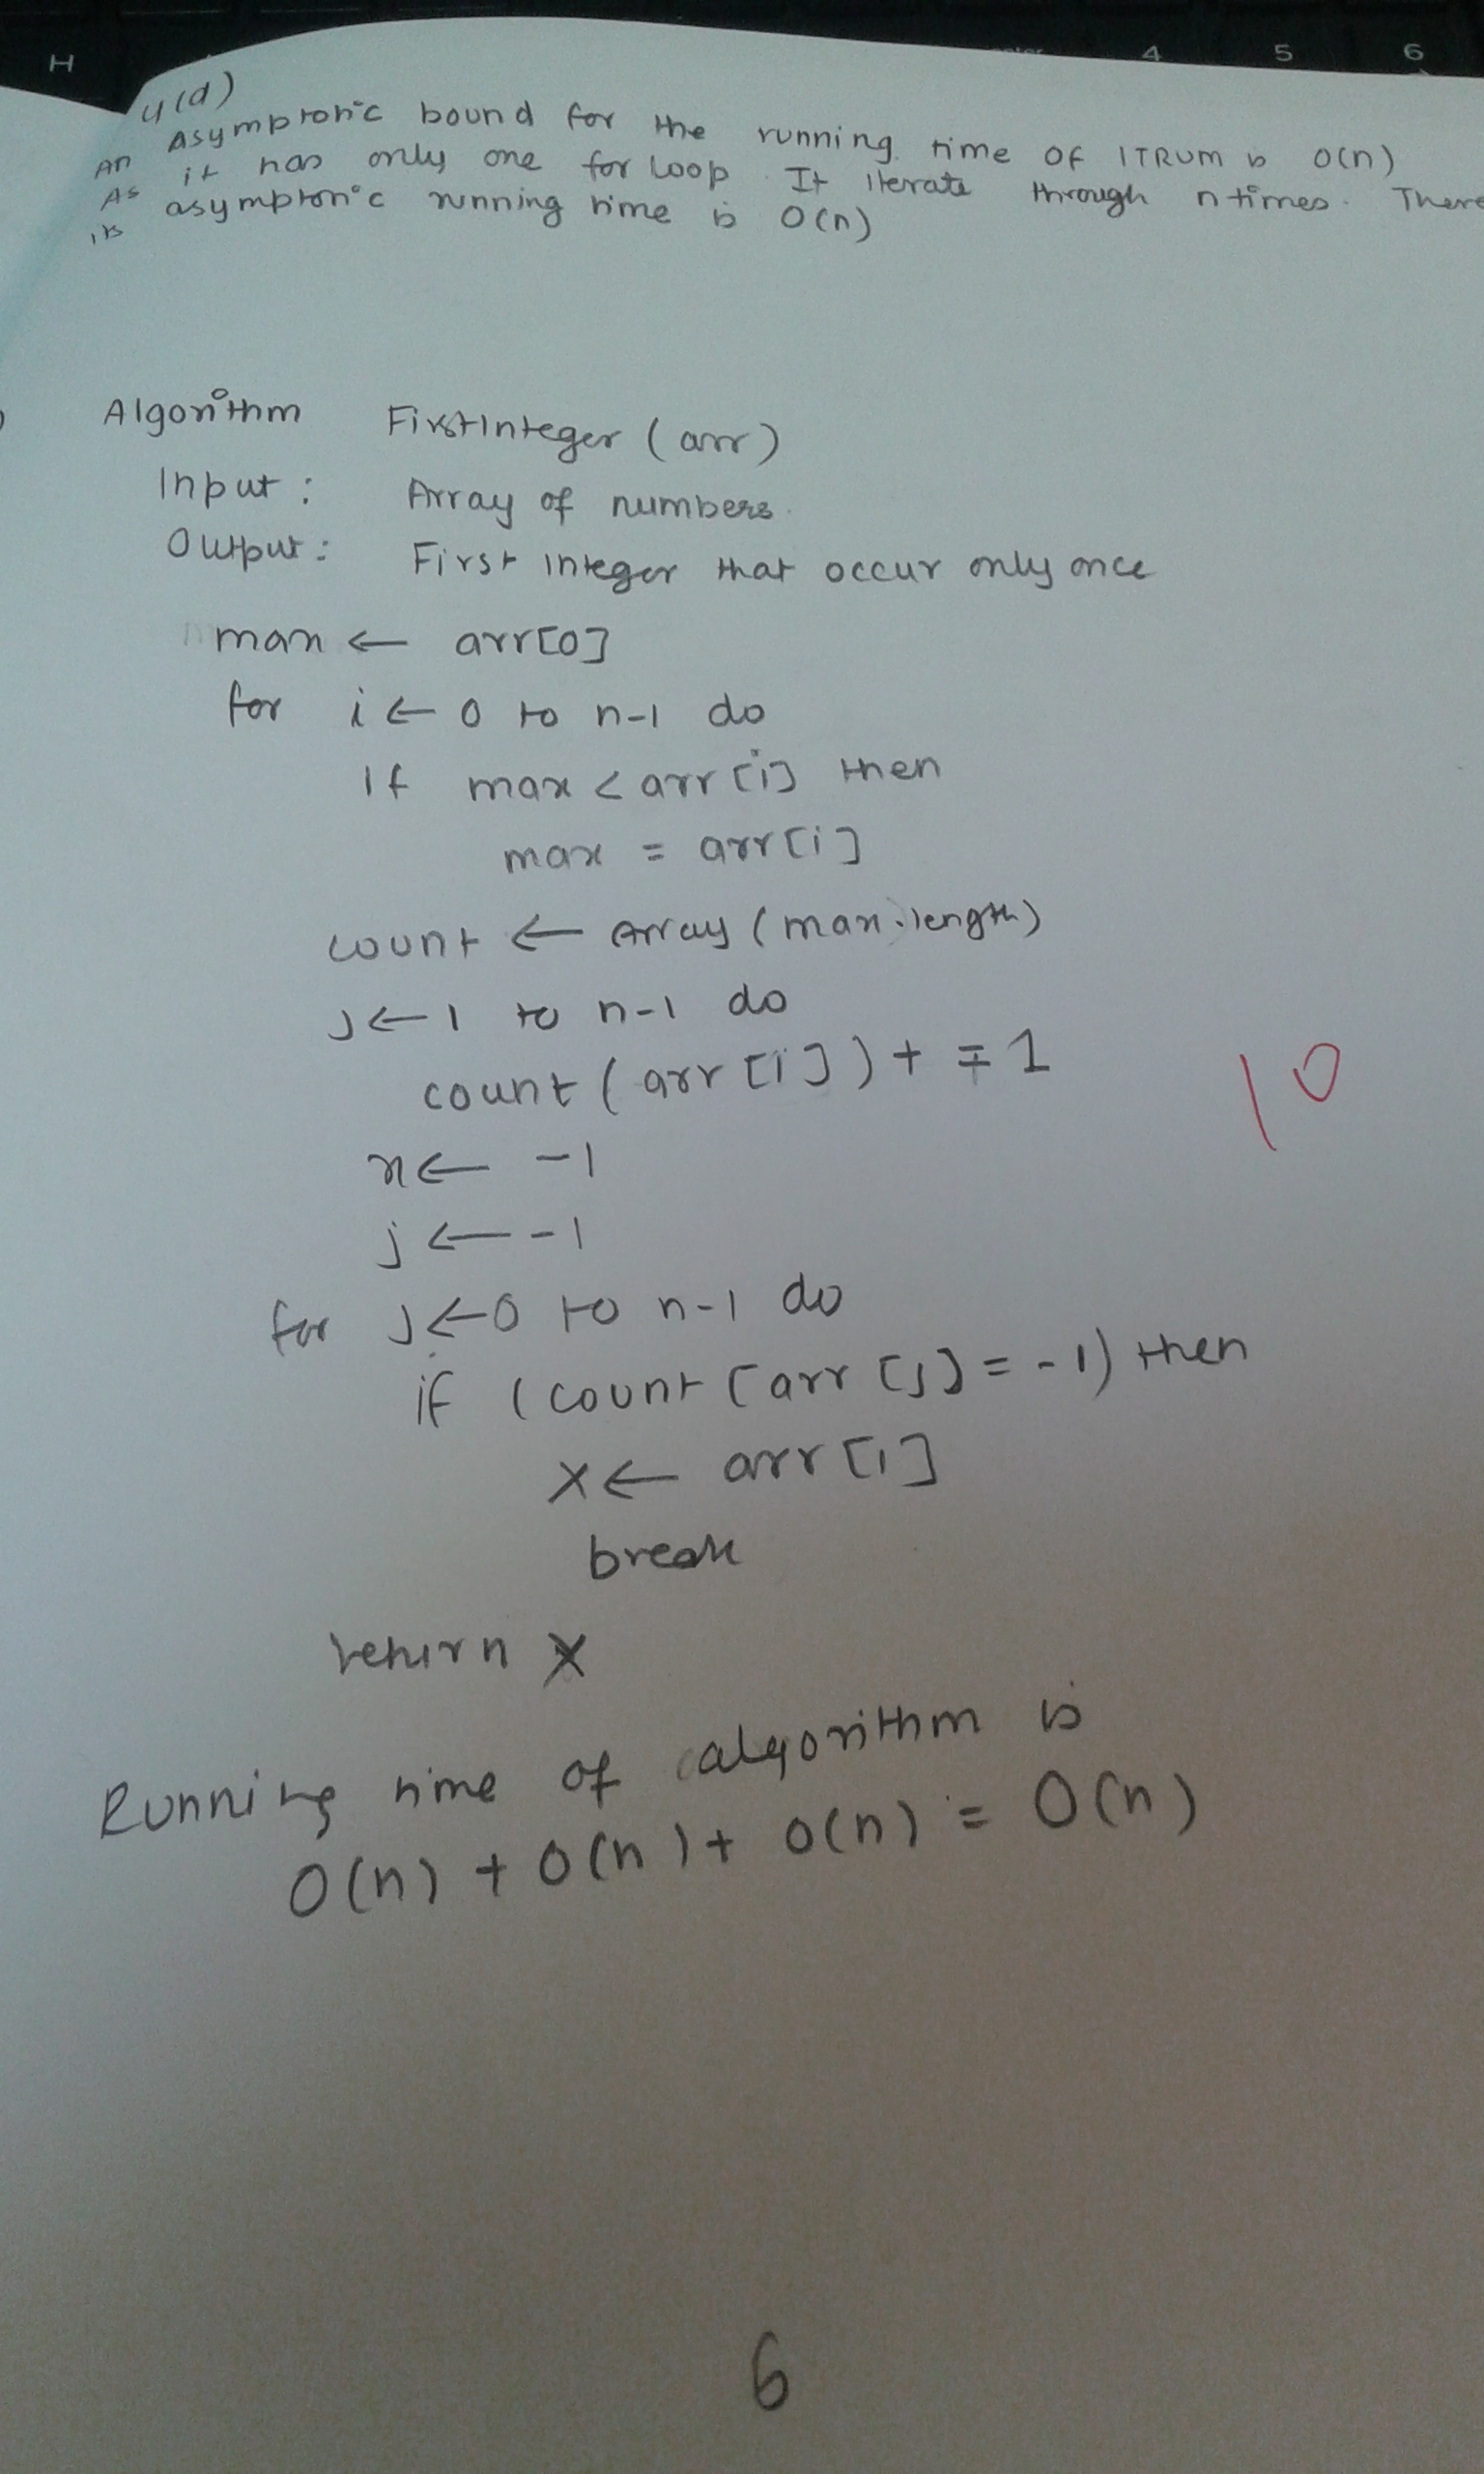 H
4
5
6
4(d)
An Asymptotic bound for the running time of ITRUM is O(n)
As it has only one for loop. It iterate through n times. There
its asymptotic running time is O(n)
Algorithm FirstInteger (arr)
Input : Array of numbers.
Output : First integer that occur only once
max ← arr[0]
for i ← 0 to n-1 do
If max < arr[i] then
max = arr[i]
count ← Array (max.length)
j ← 1 to n-1 do
count (arr[i]) + = 1
x ← -1
j ← -1
for j ← 0 to n-1 do
if (count [arr [j] = -1) then
x ← arr [i]
break
return x
Running time of algorithm is
O(n) + O(n) + O(n) = O(n)
10
6